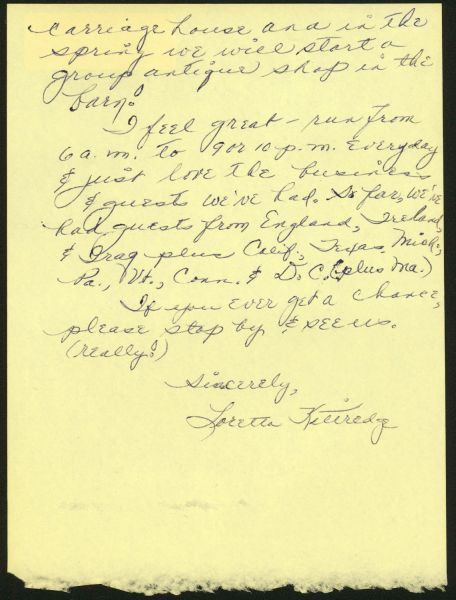 carriage house and in the
spring we will start a
group antique shop in the
barn!
I feel great - run from
6 a.m. to 9 or 10 p.m. everyday
& just love the business
& guests we've had. So far, we've
had guests from England, Ireland,
& Iraq plus Calif., Texas, Mich.,
Pa., Vt., Conn. & D.C. (plus Ma.)
If you ever get a chance,
please stop by & see us.
(really!)
Sincerely,
Loretta Kittredge